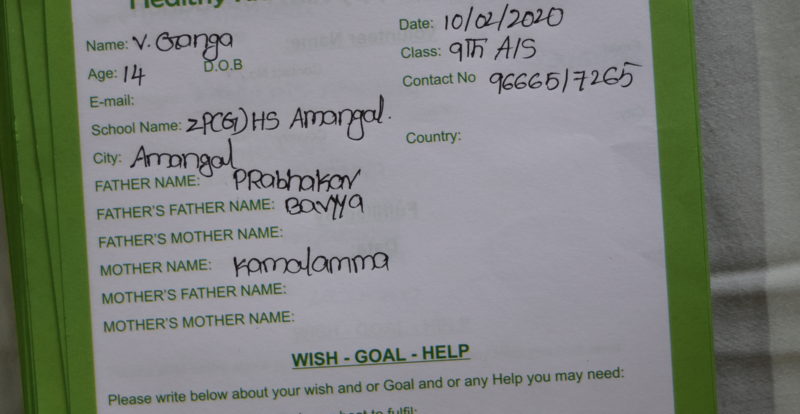 Healthy
Name: V. Ganga
Date: 10/02/2020
Age: 14 D.O.B
Class: 9Th A/S
E-mail:
Contact No 9666517265
School Name: ZP(G)HS Amangal.
City: Amangal
Country:
FATHER NAME: PRabhakar
FATHER'S FATHER NAME: Bavyya
FATHER'S MOTHER NAME:
MOTHER NAME: Kamalamma
MOTHER'S FATHER NAME:
MOTHER'S MOTHER NAME:
WISH - GOAL - HELP
Please write below about your wish and or Goal and or any Help you may need:
to fulfil: